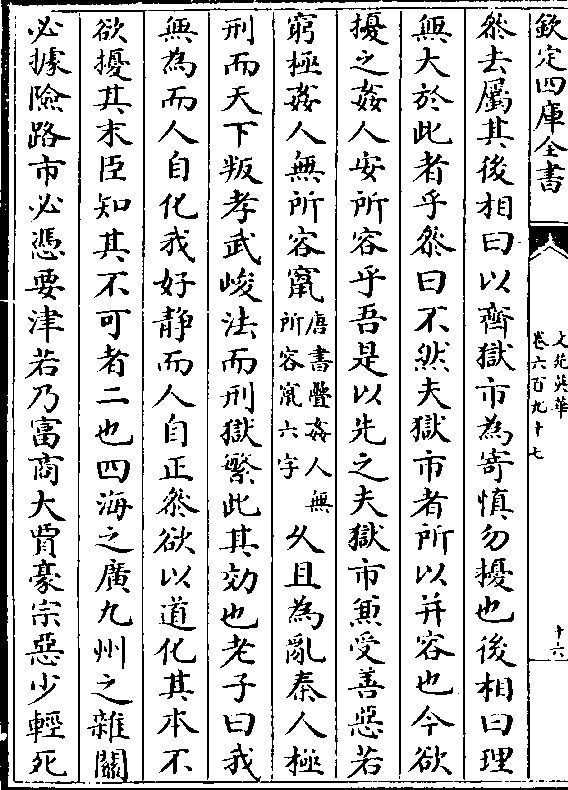 欽定四庫全書
文苑英華
卷六百九十七
十六
叅去屬其後相曰以齊獄市為寄慎勿擾也後相曰理
無大於此者乎叅曰不然夫獄市者所以并容也今欲
擾之姦人安所容乎吾是以先之夫獄市兼受善惡若
窮極姦人無所容竄唐書疊姦人無所容竄六字久且為亂秦人極
刑而天下叛孝武峻法而刑獄繁此其効也老子曰我
無為而人自化我好靜而人自正叅欲以道化其本不
欲擾其末臣知其不可者二也四海之廣九州之雜關
必據險路市必憑要津若乃富商大賈豪宗惡少輕死